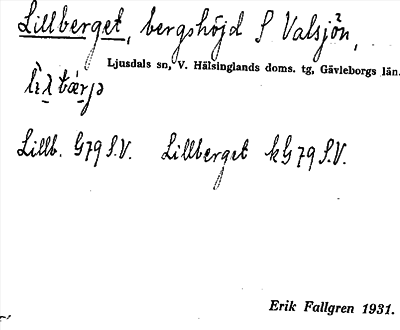 Lillberget, bergshöjd S Valsjön,
Ljusdals sn, V. Hälsinglands doms. tg, Gävleborgs län.
Lillb. G79 S.V. Lillberget kG79 S.V.
Erik Fallgren 1931.